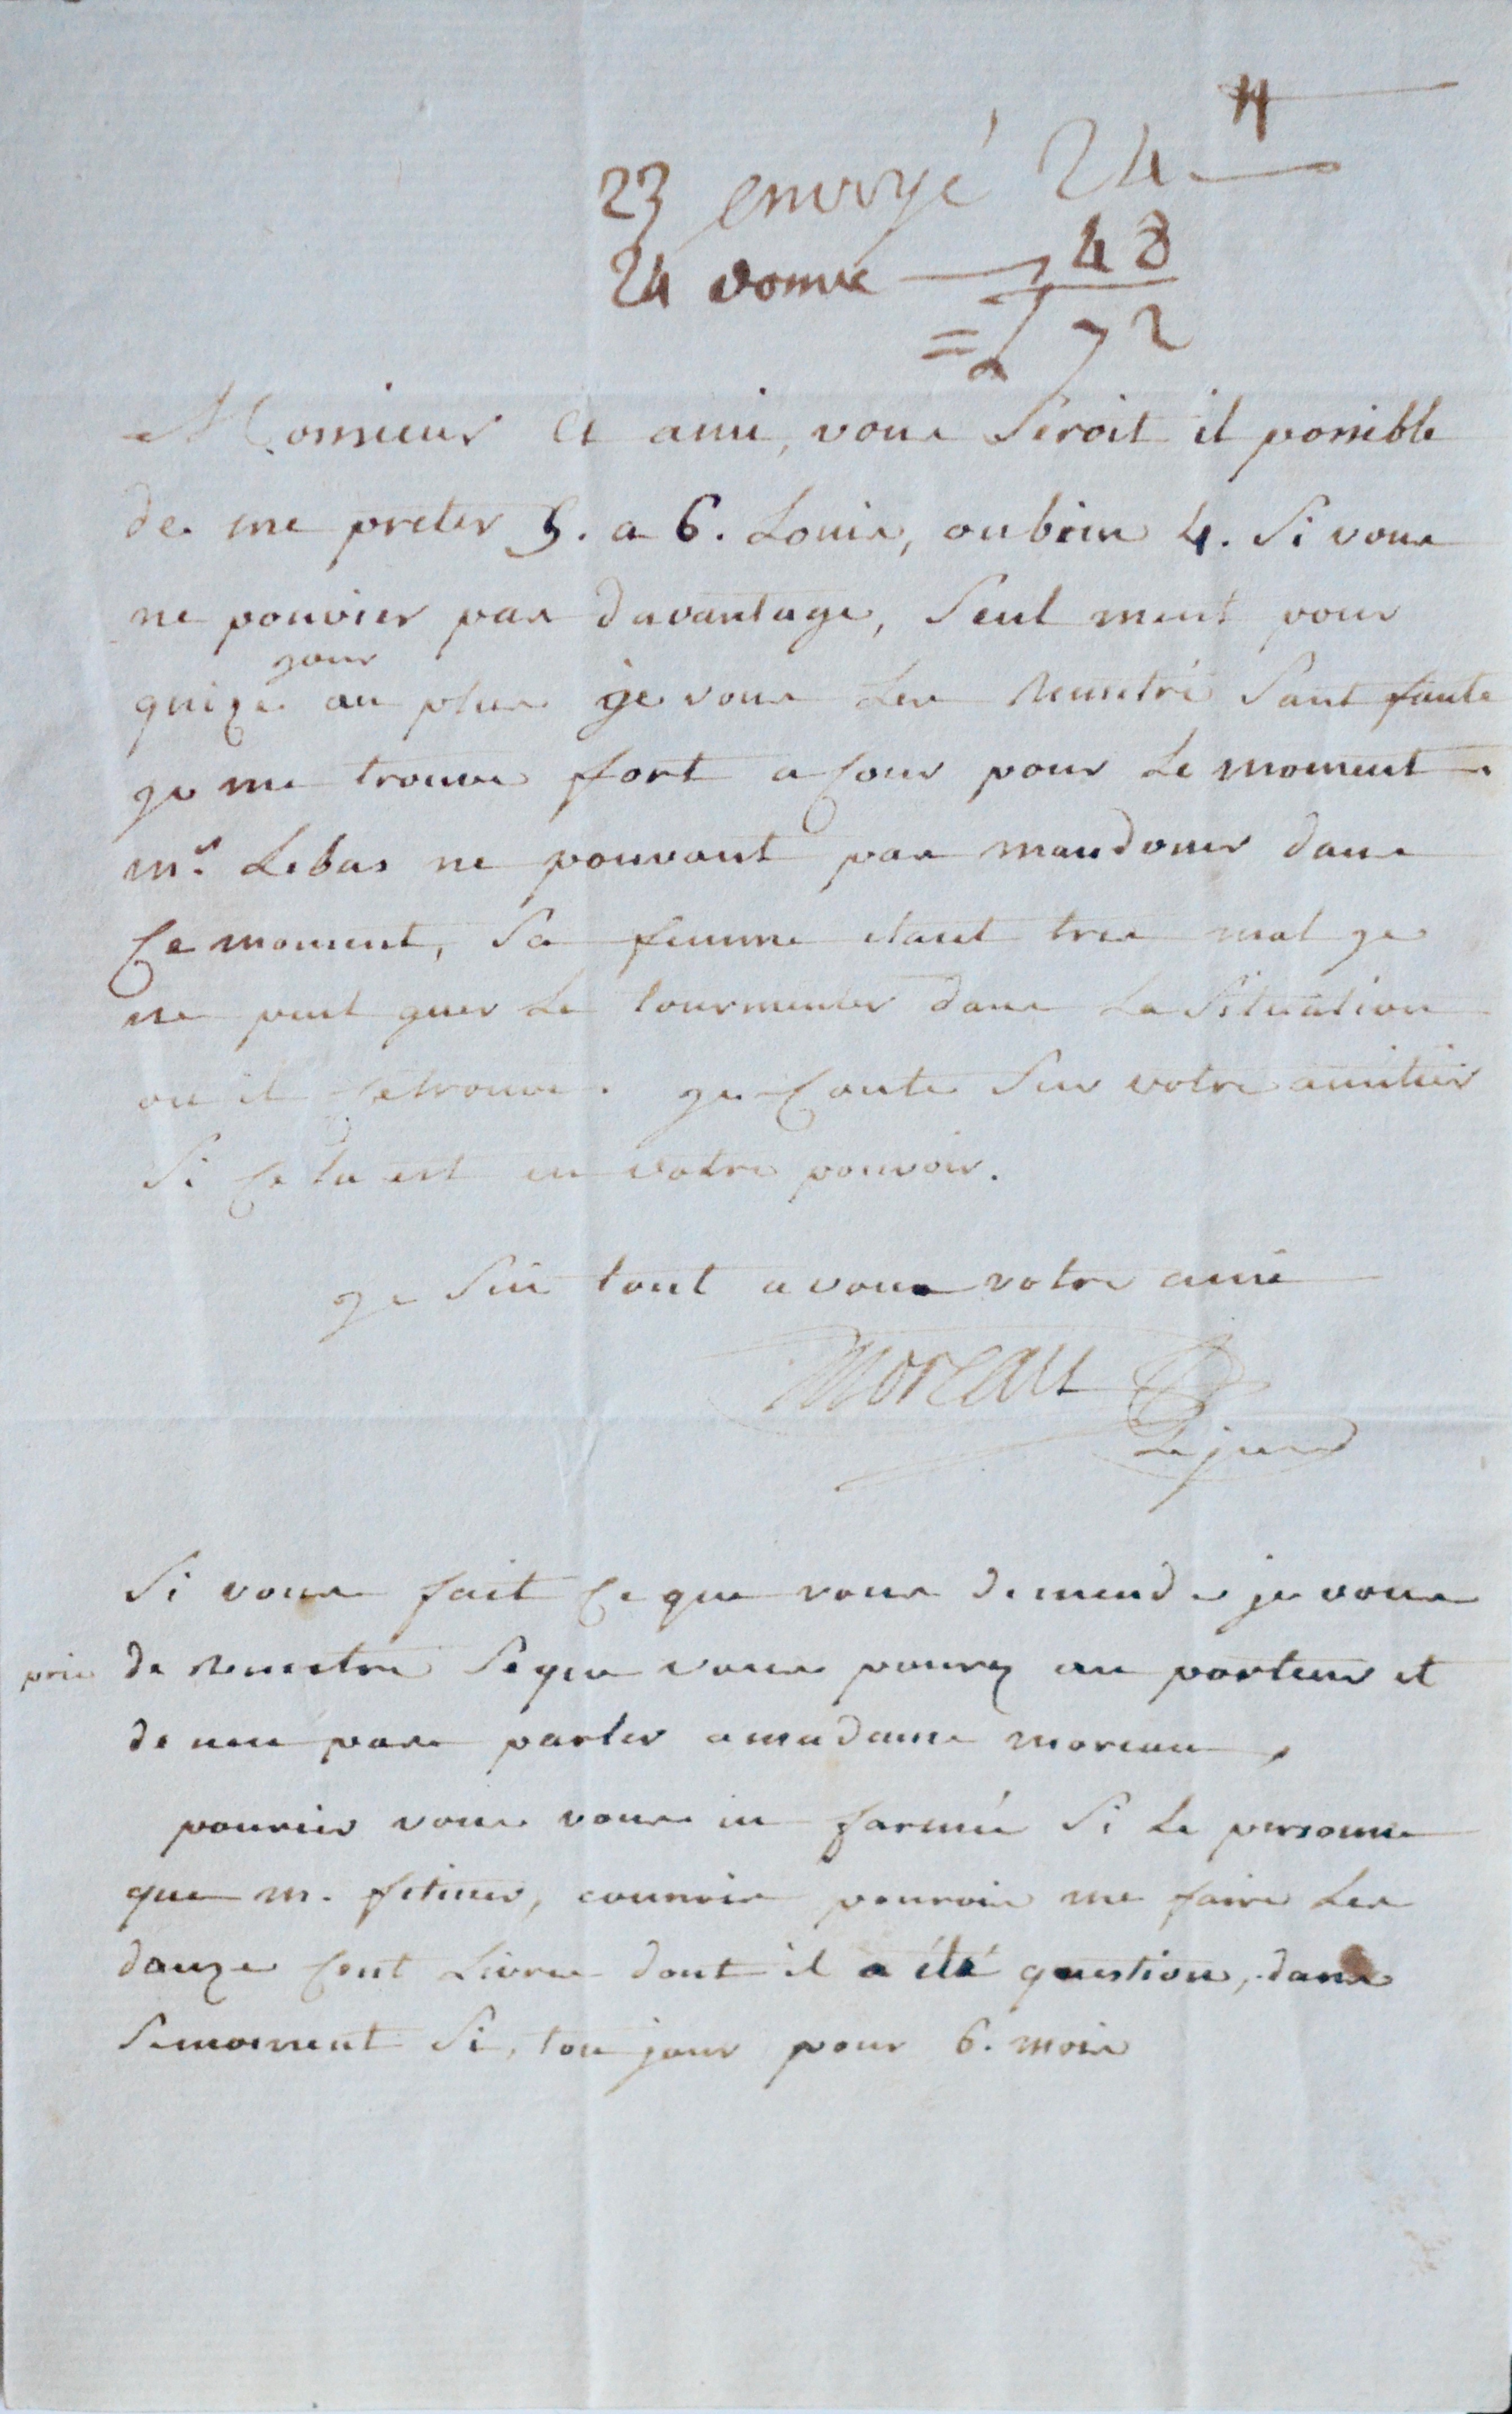 23 envoyé 24 ₶
24 donné 48
= 72
Monsieur et ami, vous seroit il possible
de me preter 5. a 6. Louis, ou bien 4. Si vous
ne pouvier pas davantage, Seul ment pour
jour
quize au plus ge vous les remetré Sant faute
ge me trouve fort a Cour pour Le moment.
mr. Lebas ne pouvant pas man doner dans
Ce moment, Sa femme etant tres mal ge
ne peut guer Le tourmenter dans La Situation
ou il se trouve. ge Conte Sur votre amitier
Si Cela est en votre pouvoir.
ge Suis tout a vous votre ami
Moreau
Le jeune
Si vous fait Ce que vous demende je vous
prie de remetre Se que vous pourez au porteur et
de neu pas parler a madame moreau,
pourier vous vous in formé Si La personne
que m. connois pouroit me faire Les
douze Cent Livres dont il a été question, dans
Se moment Si, tou jour pour 6. mois